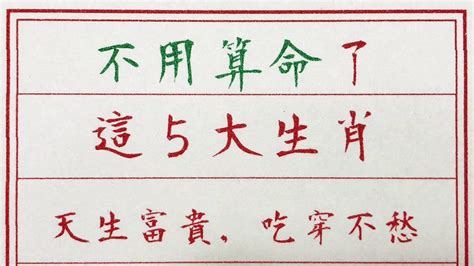 不用算命了
這5大生肖
天生富貴，吃穿不愁